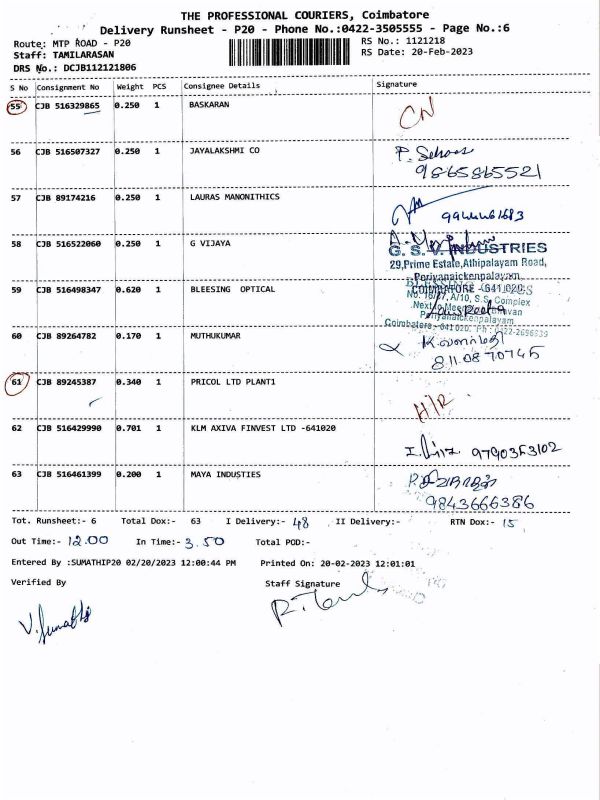 THE PROFESSIONAL COURIERS, Coimbatore
Delivery Runsheet - P20 - Phone No.:0422-3505555 - Page No.:6
Route: MTP ROAD - P20
RS No.: 1121218
Staff: TAMILARASAN
RS Date: 20-Feb-2023
DRS No.: DCJB112121806
S No Consignment No Weight PCS Consignee Details Signature
55 CJB 516329865 0.250 1 BASKARAN CN
56 CJB 516507327 0.250 1 JAYALAKSHMI CO
9865865521
57 CJB 89174216 0.250 1 LAURAS MANONITHICS
58 CJB 516522060 0.250 1 G VIJAYA
G. S. V. INDUSTRIES
29,Prime Estate,Athipalayam Road,
Periyanaickenpalayam,
COIMBATORE -641 020.
59 CJB 516498347 0.620 1 BLEESING OPTICAL
A/10, S.S. Complex
Periyanaickenpalayam,
Coimbatore - 641 020.
60 CJB 89264782 0.170 1 MUTHUKUMAR
61 CJB 89245387 0.340 1 PRICOL LTD PLANT1 H/R
62 CJB 516429990 0.701 1 KLM AXIVA FINVEST LTD -641020
9790353102
63 CJB 516461399 0.200 1 MAYA INDUSTIES
9843666386
Tot. Runsheet:- 6 Total Dox:- 63 I Delivery:- 48 II Delivery:- RTN Dox:- 15
Out Time:- 12.00 In Time:- 3.50 Total POD:-
Entered By :SUMATHIP20 02/20/2023 12:00:44 PM Printed On: 20-02-2023 12:01:01
Verified By Staff Signature
V. Sumathi